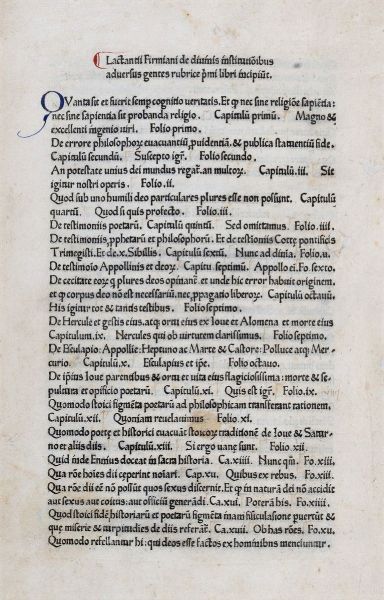 Lactantii Firmiani de diuinis institutiõibus
aduersus gentes rubrice p̃mi libri incipiũt.
QVanta sit et fuerit semp cognitio ueritatis. Et ꝙ nec sine religiõe sapiẽtia:
nec sine sapientia sit probanda religio. Capitulũ primũ. Magno &
excellenti ingenio uiri. Folio primo.
De errore philosophoꝝ euacuantiũ, puidentiã, & publica statuentiũ fide.
Capitulũ secundũ. Suscepto igr̃. Folio secundo.
An potestate unius dei mundus regat̃ an multoꝝ. Capitulũ .iii. Sit
igitur nostri operis. Folio .ii.
Quod sub uno humili deo particulares plures esse non possunt. Capitulũ
quartũ. Quod si quis profecto. Folio .iii.
De testimoniis poetarũ. Capitulũ quintũ. Sed omittamus. Folio .iiii.
De testimoniis, ꝓphetarũ et philosophorũ. Et de testioniis Cotte pontificis
Trimegisti. Et de .x. Sibillis. Capitulũ sextũ. Nunc ad diuia. Folio .v.
De testimoio Appollinis et deoꝝ. Capitu septimũ. Appollo ei. Fo. sexto.
De cecitate eoꝝ ꝙ plures deos opinant̃ et unde hic error habuit originem.
et ꝙ corpus deo nõ est necessariũ, nec, ꝓpagatio liberoꝝ. Capitulũ octauũ.
His igitur tot & tantis testibus. Folio septimo.
De Hercule et gestis eius, atꝗ ortu eius ex Ioue et Alomena et morte eius
Capitulum .ix. Hercules qui ob uirtutem clarissimus. Folio septimo.
De Esculapio: Appollie: Neptuno ac Marte & Castore: Polluce atꝗ Mer-
curio. Capitulũ .x. Esculapius et ip̃e. Folio octauo.
De ip̃ius Ioue parentibus & ortu et uita eius flagiciosissima: morte & se-
pultura et opificio poetarũ. Capitulũ .xi. Quis est igr̃. Folio .ix.
Quomodo stoici figmẽta poetarũ ad philosophicam transferant rationem.
Capitulũ .xii. Quoniam reuelauimus Folio .xi.
Quomodo poete et historici euacuãt stoicoꝝ traditionẽ de Ioue & Satur-
no et aliis diis. Capitulũ .xiii. Si ergo uane sunt. Folio .xii.
Quid inde Ennius doceat in sacra historia. Ca .xiiii. Nunc qm̃. Fo. xiii.
Qua rõe hoies dii ceperint noiari. Cap. xv. Quibus ex rebus. Fo. xiii.
Qua rõe dii eẽ nõ possũt quos sexus discernit. Et ꝙ in naturã dei nõ accidit
aut sexus aut coitus: aut officiũ generãdi. Ca .xvi. Potera his. Fo. xiiii.
Quod stoici fidẽ historiarũ et poetarũ figmẽta inani fisiculasione puertũt &
que miserie & turpitudies de diis referãt̃. Ca .xvii. Ob has rões. Fo. xv.
Quomodo refellantur hi: qui deos esse factos ex hominibus mentiuntur.